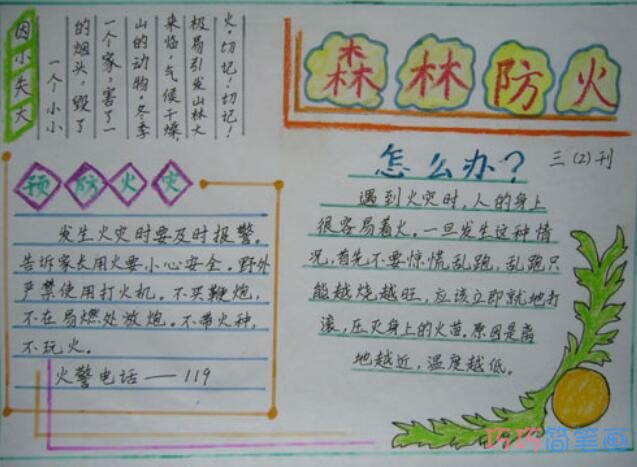 因小失大
一个小小
的烟头，毁了
一个家，害了一
山的动物。冬季
来临，气候干燥，
极易引发山林大
火。切记！切记！
森林防火
预防火灾
发生火灾时要及时报警。
告诉家长用火要小心安全。野外
严禁使用打火机。不买鞭炮，
不在易燃处放炮。不带火种，
不玩火。
火警电话——119
怎么办？
三(2)刊
遇到火灾时，人的身上
很容易着火。一旦发生这种情
况，首先不要惊慌乱跑，乱跑只
能越烧越旺，应该立即就地打
滚，压灭身上的火苗，原因是离
地越近，温度越低。
巧巧简笔画